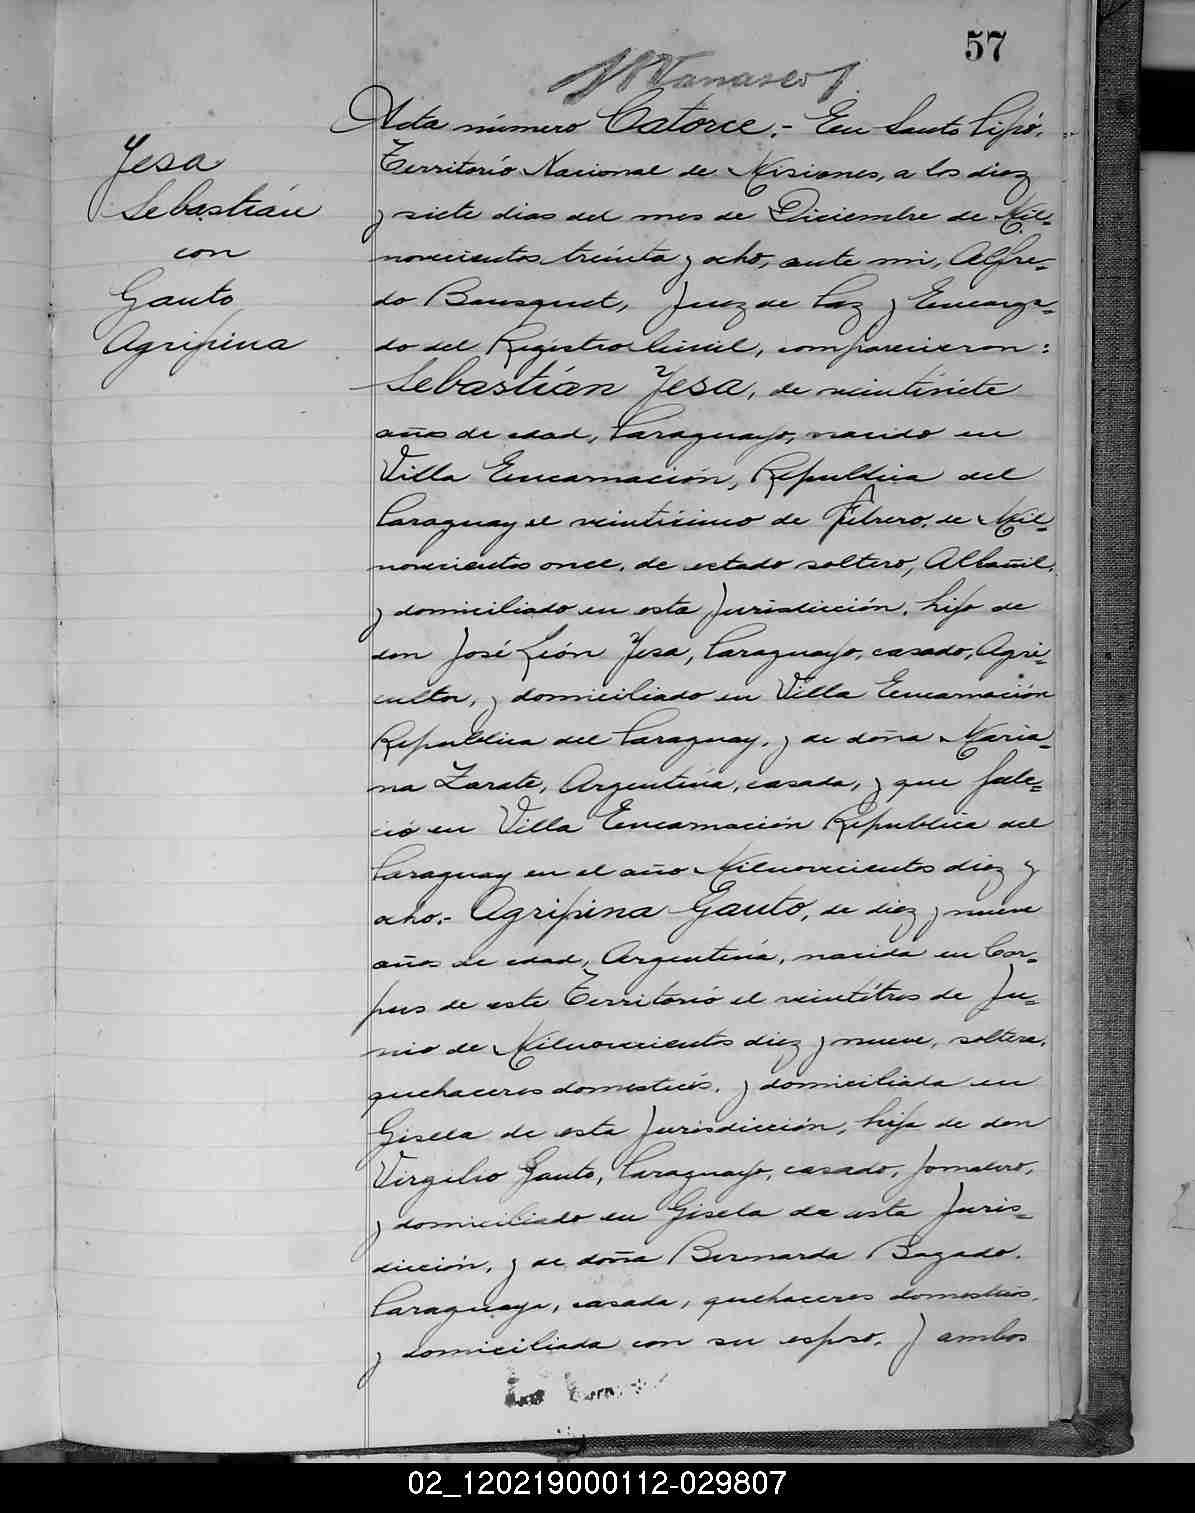 57
Yesa
Sebastián
con
Gauto
Agripina
Acta número Catorce.- En Santo Pipó,
Territorio Nacional de Misiones, a los diez
y siete dias del mes de Diciembre de Mil-
novecientos treinta y ocho, ante mi, Alfre-
do Bousquet, Juez de Paz y Encarga-
do del Registro Civil, comparecieron:
Sebastián Yesa, de veintisiete
años de edad, Paraguayo, nacido en
Villa Encarnación, Republica del
Paraguay el veintisinco de Febrero, de Mil-
novecientos once, de estado soltero, Albañil,
y domiciliado en esta Jurisdicción, hijo de
don José León Yesa, Paraguayo, casado, Agri-
cultor, y domiciliado en Villa Encarnación
Republica del Paraguay, y de doña Maria-
na Zarate, Argentina, casada, y que falle-
ció en Villa Encarnación Republica del
Paraguay en el año Milnovecientos diez y
ocho.- Agripina Gauto, de diez y nueve
años de edad, Argentina, nacida en Cor-
pus de este Territorio el veintitres de Ju-
nio de Milnovecientos diez y nueve, soltera,
quehaceres domesticos, y domiciliada en
Gisela de esta Jurisdicción, hija de don
Virgilio Gauto, Paraguayo, casado, Jornalero,
y domiciliado en Gisela de esta Juris-
dicción, y de doña Bernarda Bogado,
Paraguaya, casada, quehaceres domesticos,
y domiciliada con su esposo. Y ambos
02_120219000112-029807